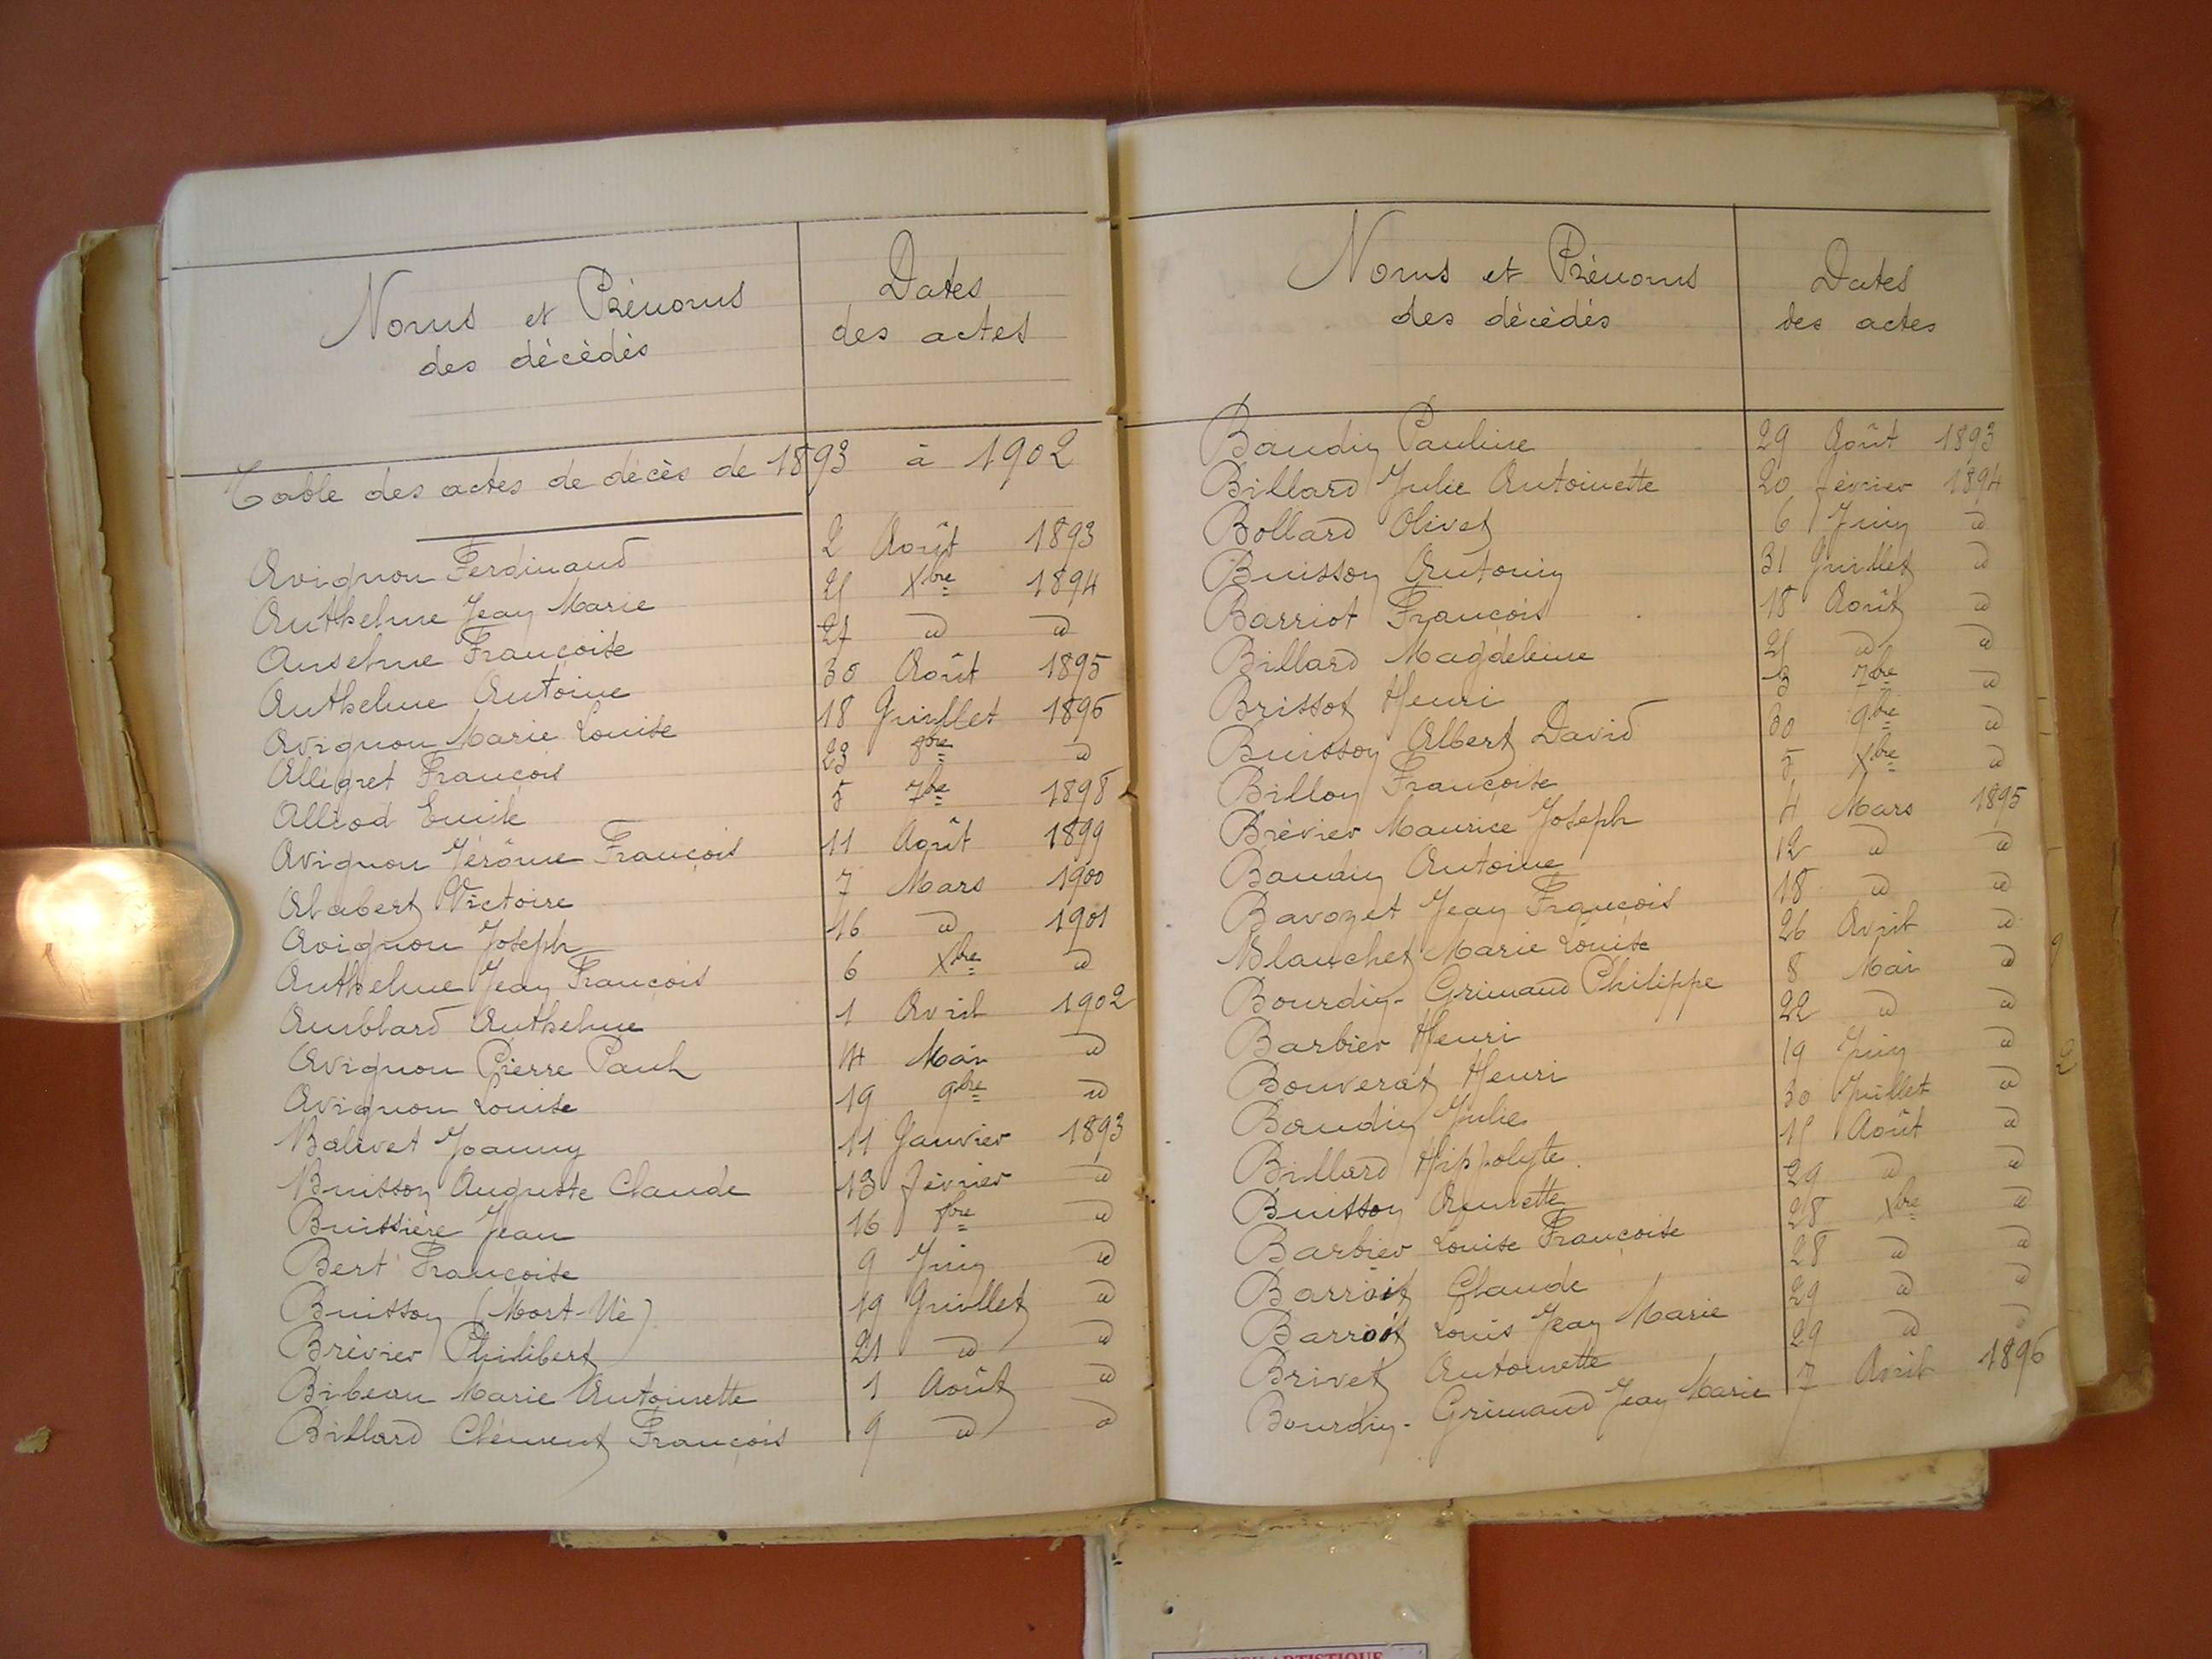 Noms et Prénoms
des décédés
Dates
des actes
Table des actes de décès de 1893 à 1902
Avignon Ferdinand 2 Août 1893
Anthelme Jean Marie 21 Xbre 1894
Anselme Françoise 27 d d
Anthelme Antoine 30 Août 1895
Avignon Marie Louise 18 Juillet 1896
Allegret François 23 8bre d
Alliod Emile 5 7bre 1898
Avignon Jérôme François 11 Août 1899
Alabert Victoire 7 Mars 1900
Avignon Joseph 16 d 1901
Anthelme Jean François 6 Xbre d
Amblard Anthelme 1 Avril 1902
Avignon Pierre Paul 14 Mai d
Avignon Louise 19 9bre d
Balivet Joanny 11 Janvier 1893
Buisson Auguste Claude 13 février d
Buissière Jean 16 d
Bert Françoise 9 Juin d
Buisson (Mort-Né) 19 Juillet d
Brévier Philibert 21 d d
Bibeau Marie Antoinette 1 Août d
Billard Clément François 9 d d
Noms et Prénoms
des décédés
Dates
des actes
Baudin Pauline 29 Août 1893
Billard Julie Antoinette 20 février 1894
Bollard Olivet 6 Juin d
Buisson Antonin 31 Juillet d
Barriot François 18 Août d
Billard Magdeleine 21 d d
Brissot Henri 3 7bre d
Buisson Albert David 30 9bre d
Billon Françoise 5 Xbre d
Brévier Maurice Joseph 4 Mars 1895
Baudin Antoine 12 d d
Bavozet Jean François 18 d d
Blanchet Marie Louise 26 Avril d
Bourdin-Grimaud Philippe 8 Mai d
Barbier Henri 22 d d
Bouverat Henri 19 Juin d
Baudin Julie 30 Juillet d
Billard Hippolyte 15 Août d
Buisson 29 d d
Barbier Louise Françoise 28 Xbre d
Barroit Claude 28 d d
Barroit Louis Jean Marie 29 d d
Brivet Antoinette 29 d d
Bourdin-Grimaud Jean Marie 7 Avril 1896
ARTISTIQUE